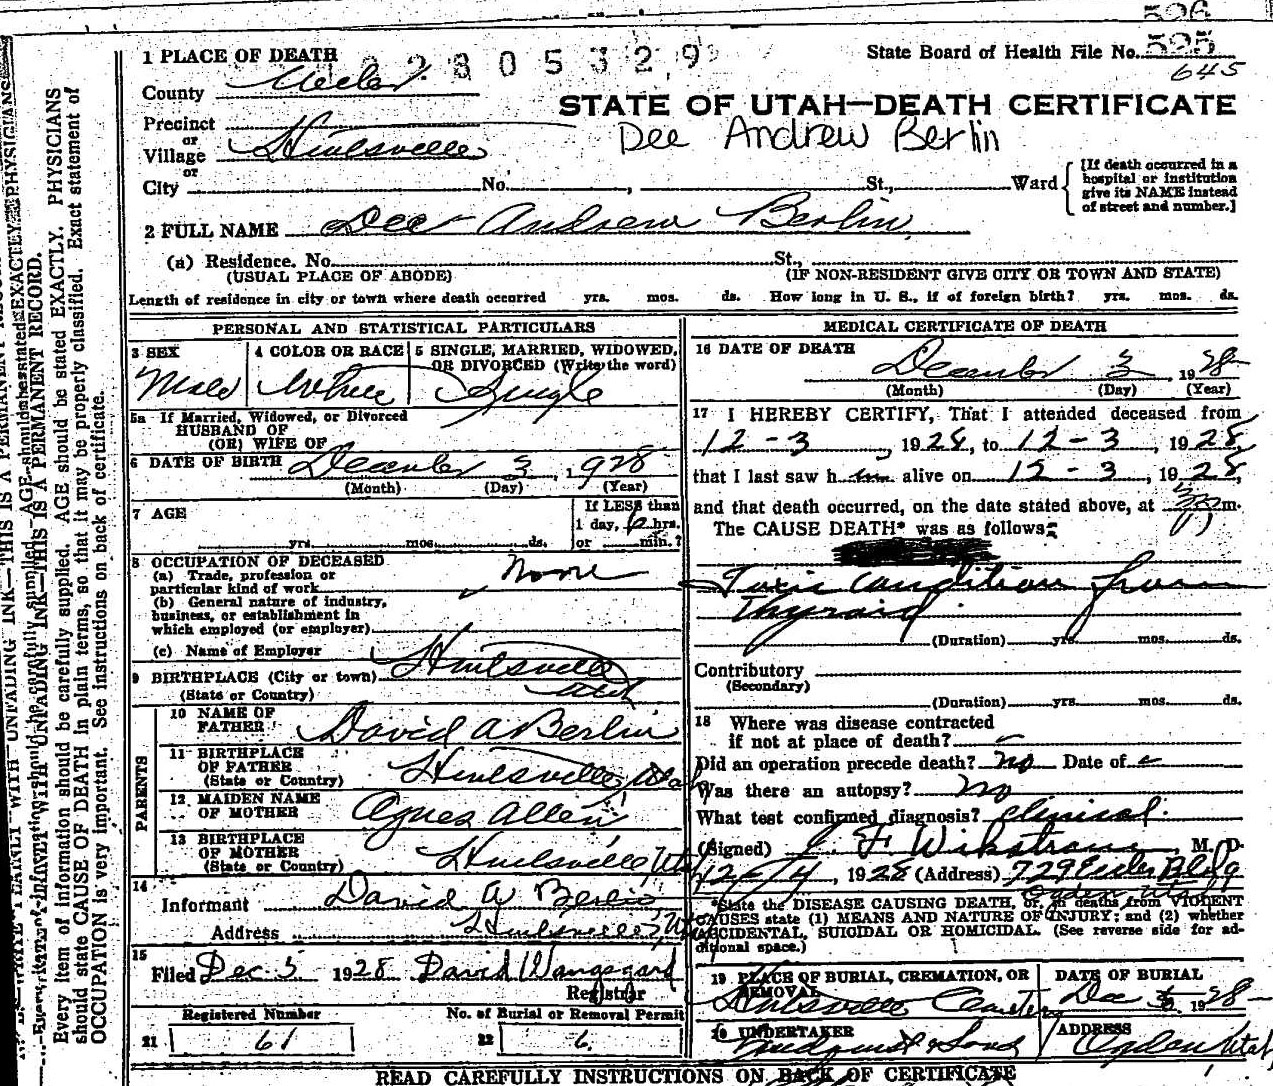 526
1 PLACE OF DEATH 2 8 0 5 3 2 9 State Board of Health File No. 525
645
County Weber
STATE OF UTAH—DEATH CERTIFICATE
Precinct
or
Village Huntsville
Dee Andrew Berlin
or
City No. , St., Ward
[If death occurred in a
hospital or institution
give its NAME instead
of street and number.]
2 FULL NAME Dee Andrew Berlin
(a) Residence. No. St.,
(USUAL PLACE OF ABODE) (IF NON-RESIDENT GIVE CITY OR TOWN AND STATE)
Length of residence in city or town where death occurred yrs. mos. ds. How long in U. S., if of foreign birth? yrs. mos. ds.
PERSONAL AND STATISTICAL PARTICULARS
3 SEX 4 COLOR OR RACE 5 SINGLE, MARRIED, WIDOWED,
OR DIVORCED (Write the word)
Male White Single
5a If Married, Widowed, or Divorced
HUSBAND OF
(OR) WIFE OF
6 DATE OF BIRTH December 3, 1928
(Month) (Day) (Year)
7 AGE If LESS than
1 day, 12 hrs.
yrs. mos. ds. or min.?
8 OCCUPATION OF DECEASED
(a) Trade, profession or
particular kind of work None
(b) General nature of industry,
business, or establishment in
which employed (or employer)
(c) Name of Employer
9 BIRTHPLACE (City or town) Huntsville
(State or Country) Utah
PARENTS
10 NAME OF
FATHER David A Berlin
11 BIRTHPLACE
OF FATHER
(State or Country) Huntsville, Utah
12 MAIDEN NAME
OF MOTHER Agnes Allen
13 BIRTHPLACE
OF MOTHER
(State or Country) Huntsville, Utah
14
Informant David A Berlin
Address Huntsville, U
15
Filed Dec 5 1928 David Wangsgard
Registrar
Registered Number No. of Burial or Removal Permit
21 61 22 6
MEDICAL CERTIFICATE OF DEATH
16 DATE OF DEATH
December 3, 1928
(Month) (Day) (Year)
17 I HEREBY CERTIFY, That I attended deceased from
12-3, 1928, to 12-3, 1928,
that I last saw him alive on 12-3, 1928,
and that death occurred, on the date stated above, at m.
The CAUSE DEATH* was as follows:
Toxic condition from
Thyroid
(Duration) yrs. mos. ds.
Contributory
(Secondary)
(Duration) yrs. mos. ds.
18 Where was disease contracted
if not at place of death?
Did an operation precede death? no Date of
Was there an autopsy? no
What test confirmed diagnosis? clinical
(Signed) J F Wikstrom, M. D.
12/4, 1928 (Address) 729 Eccles Bldg
Ogden Utah
*State the DISEASE CAUSING DEATH, or, in deaths from VIOLENT
CAUSES state (1) MEANS AND NATURE OF INJURY; and (2) whether
ACCIDENTAL, SUICIDAL OR HOMICIDAL. (See reverse side for ad-
ditional space.)
19 PLACE OF BURIAL, CREMATION, OR
REMOVAL DATE OF BURIAL
Huntsville Cemetery Dec 1928
20 UNDERTAKER ADDRESS
Lindquist & Sons Ogden Utah
READ CAREFULLY INSTRUCTIONS ON BACK OF CERTIFICATE
Every item of information should be carefully supplied. AGE should be stated EXACTLY. PHYSICIANS
should state CAUSE OF DEATH in plain terms, so that it may be properly classified. Exact statement of
OCCUPATION is very important. See instructions on back of certificate.